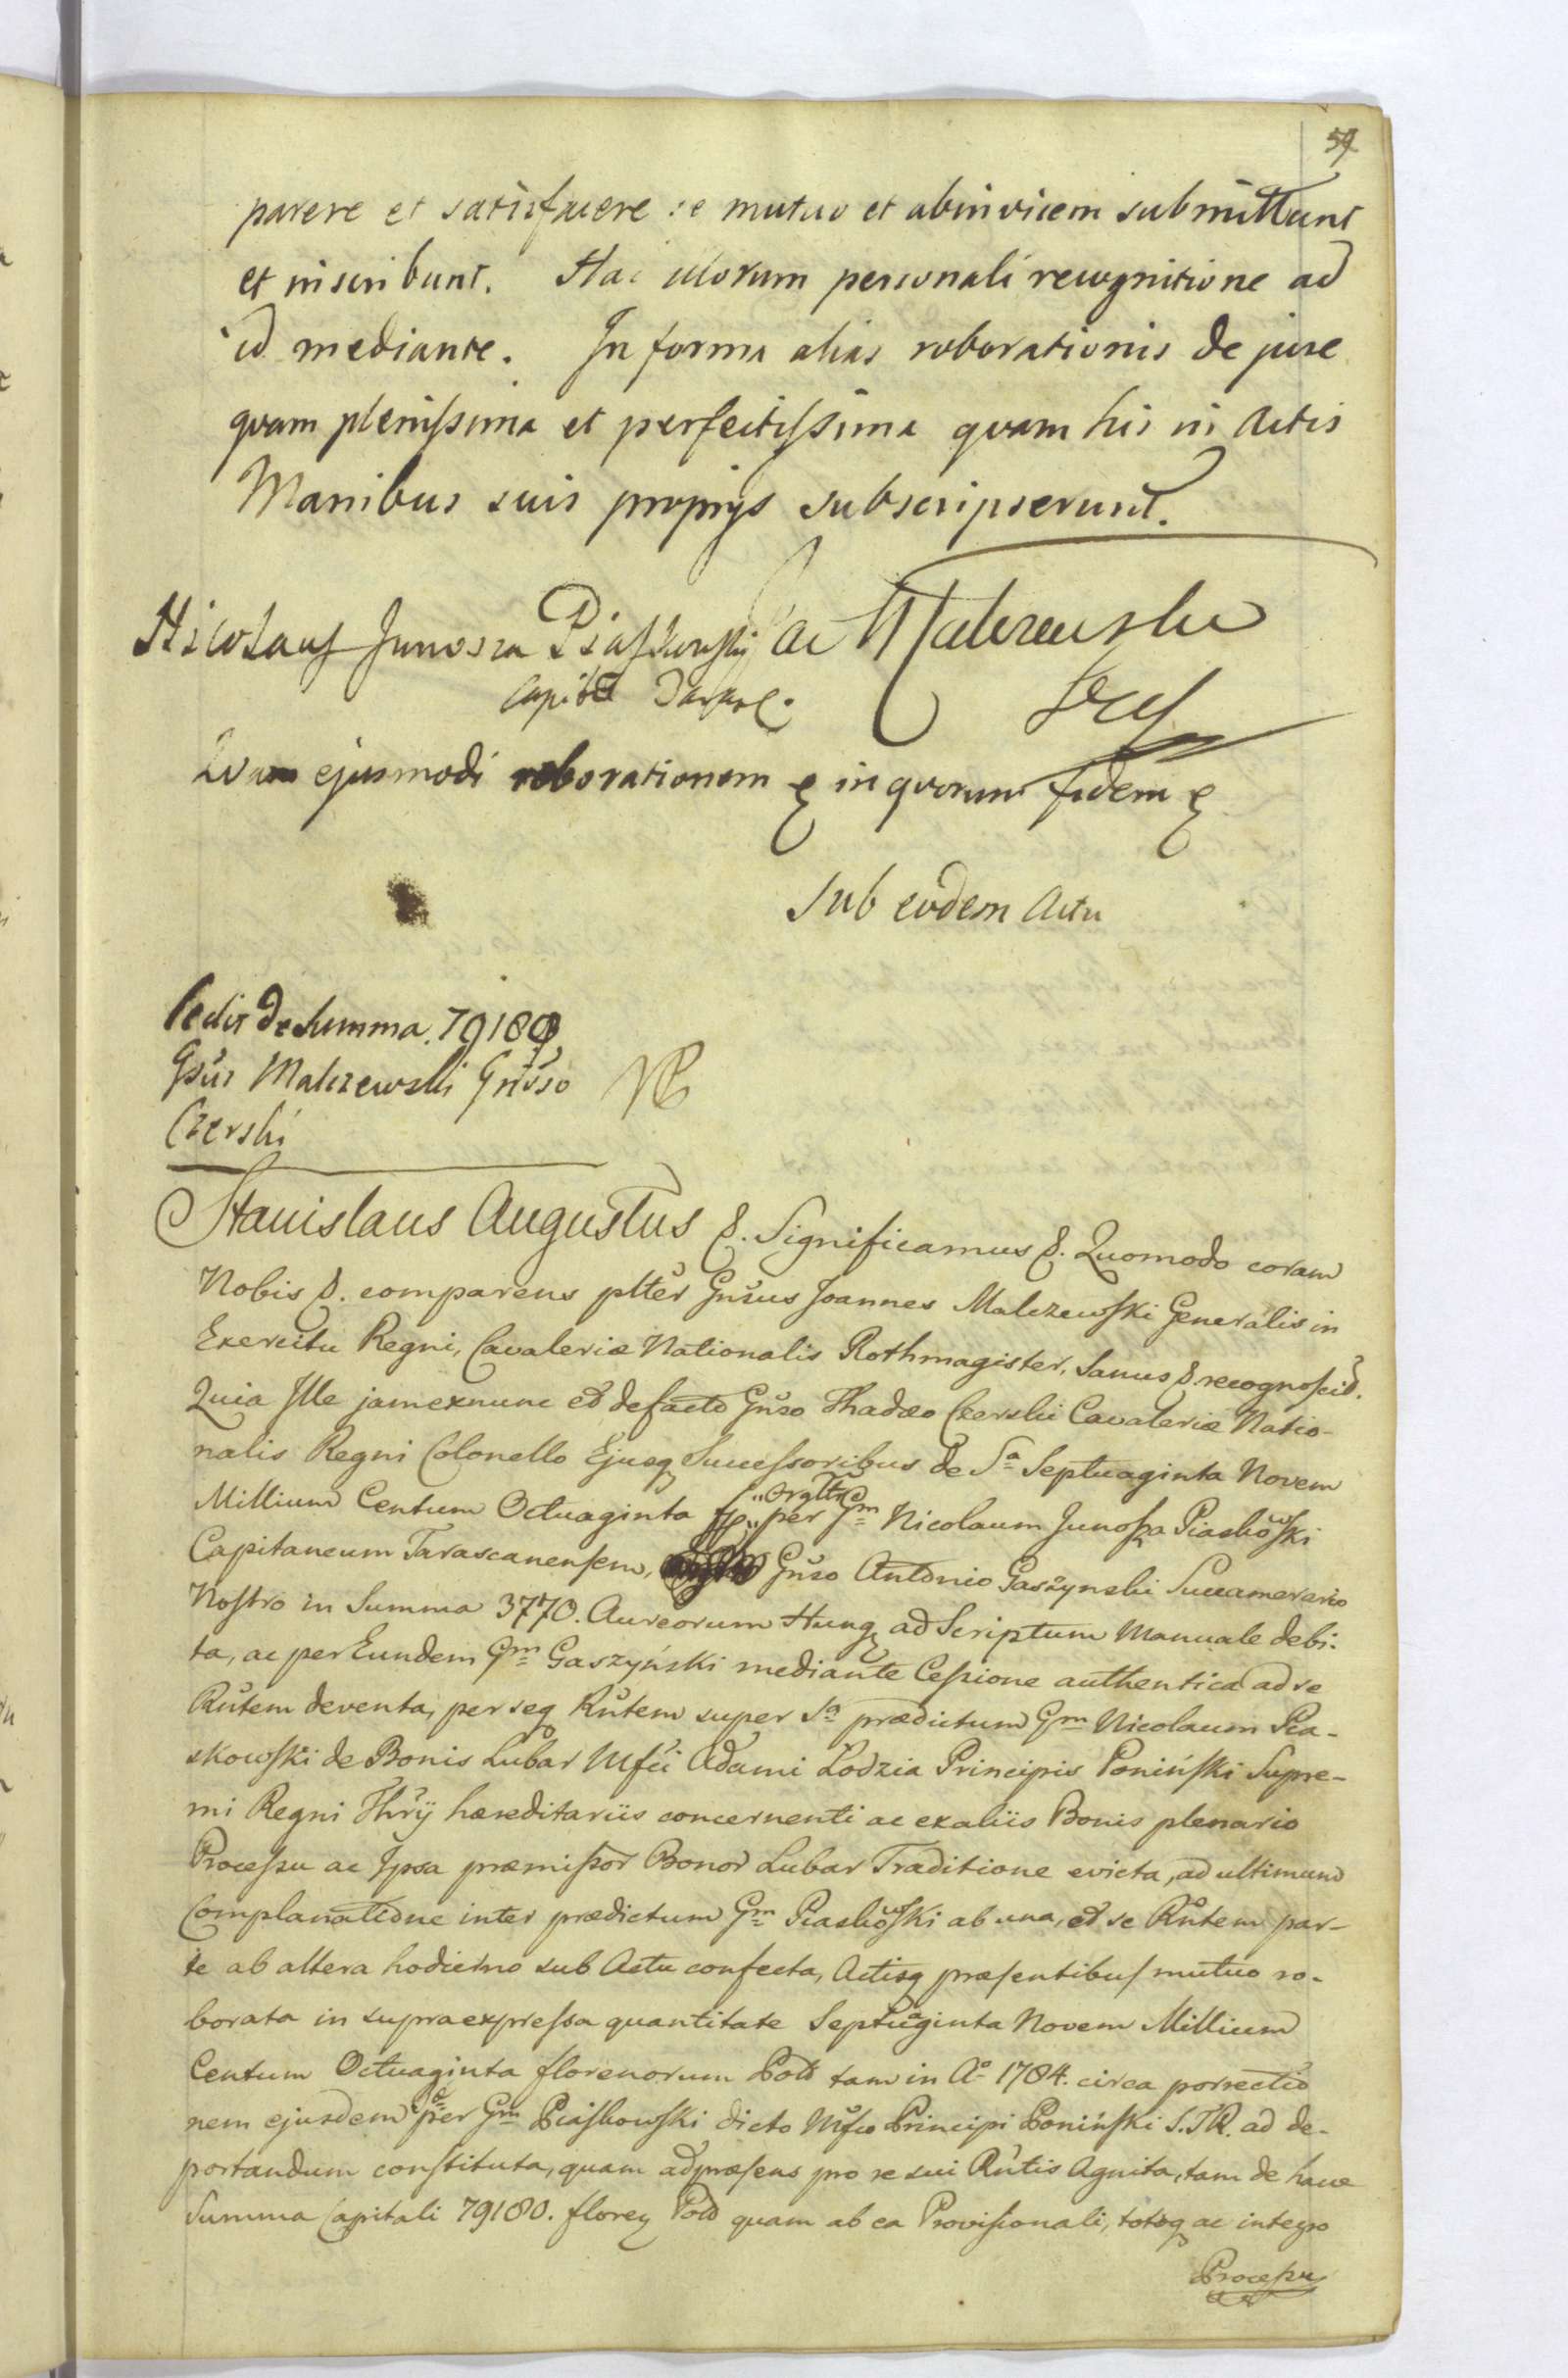 59
parere et satisfacere se mutuo et abinvicem submittunt
et inscribunt. Hac illorum personali recognitione ad
id mediante. In forma alias roborationis de jure
qvam plenissima et perfectissima qvam his in Actis
Manibus suis proprijs subscripserunt.
Nicolaus Junosza Piaskowskij Ac Malczewski
Capita Taraxc.
Qvam ejusmodi roborationem & in qvorum fidem &
Sub eodem Actu
Cedit de Summa 79180
Gsus Malczewski Gnoso
Czerski
Stanislaus Augustus &. Significamus &. Quomodo coram
Nobis &. comparens plter Gnsus Joannes Malczewski Generalis in
Exercitu Regni, Cavaleriæ Nationalis Rothmagister, Sanus &. recognoscit.
Quia Ille jamexnunc et defacto Gnso Thadæo Czerski Cavaleriæ Natio-
nalis Regni Colonello Ejusq Successoribus de Sa Septuaginta Novem
Millium Centum Octuaginta fp. "orgltr per Gm Nicolaum Junosza Piaskowski
Capitaneum Tarascanensem, Gnso Antonio Gaszynski Succamerario
Nostro in Summa 3770. Aureorum Hung ad Scriptum Manuale debi-
ta, ac per Eundem Gm Gaszyński mediante Cessione authentica ad se
Rntem deventa, per seq Rntem super Sa prædictum Gm Nicolaum Pia-
skowski de Bonis Lubar Mfci Adami Łodzia Principis Poniński Supre-
mi Regni Thrij hæreditariis concernenti ac ex aliis Bonis plenario
Processu ac Ipsa præmissor Bonor Lubar Traditione evicta, ad ultimum
Complanatione inter prædictum Gm Piaskowski ab una, et se Rntem par-
te ab altera hodierno sub Actu confecta, Actisq præsentibus mutuo ro-
borata in supraexpressa quantitate Septuaginta Novem Millium
Centum Octuaginta florenorum Pold tam in Ao 1784. circa porrectio
nem ejusdem per Gm Piaskowski dicto Mfco Principi Poniński S.T.R. ad de-
portandum constituta, quam ad præsens pro re sui Rntis Agnita, tam de hanc
Summa Capitali 79180. floreq Pold quam ab ea Provisionali, totoq ac integro
Processu